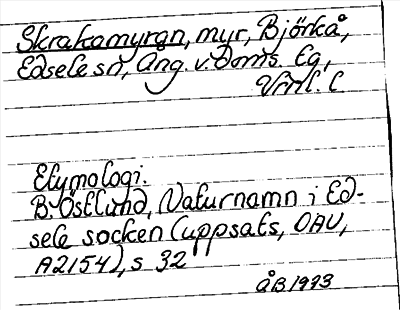 Skrakamyrgn, myr, Björkå,
Edsele sn, Ång. v. Doms. Eg,
Vrnl. C
Etymologi.
B. Östlund, Naturnamn i Ed-
sele socken (uppsats, OAU,
A2154), s 32
ÅB 1973